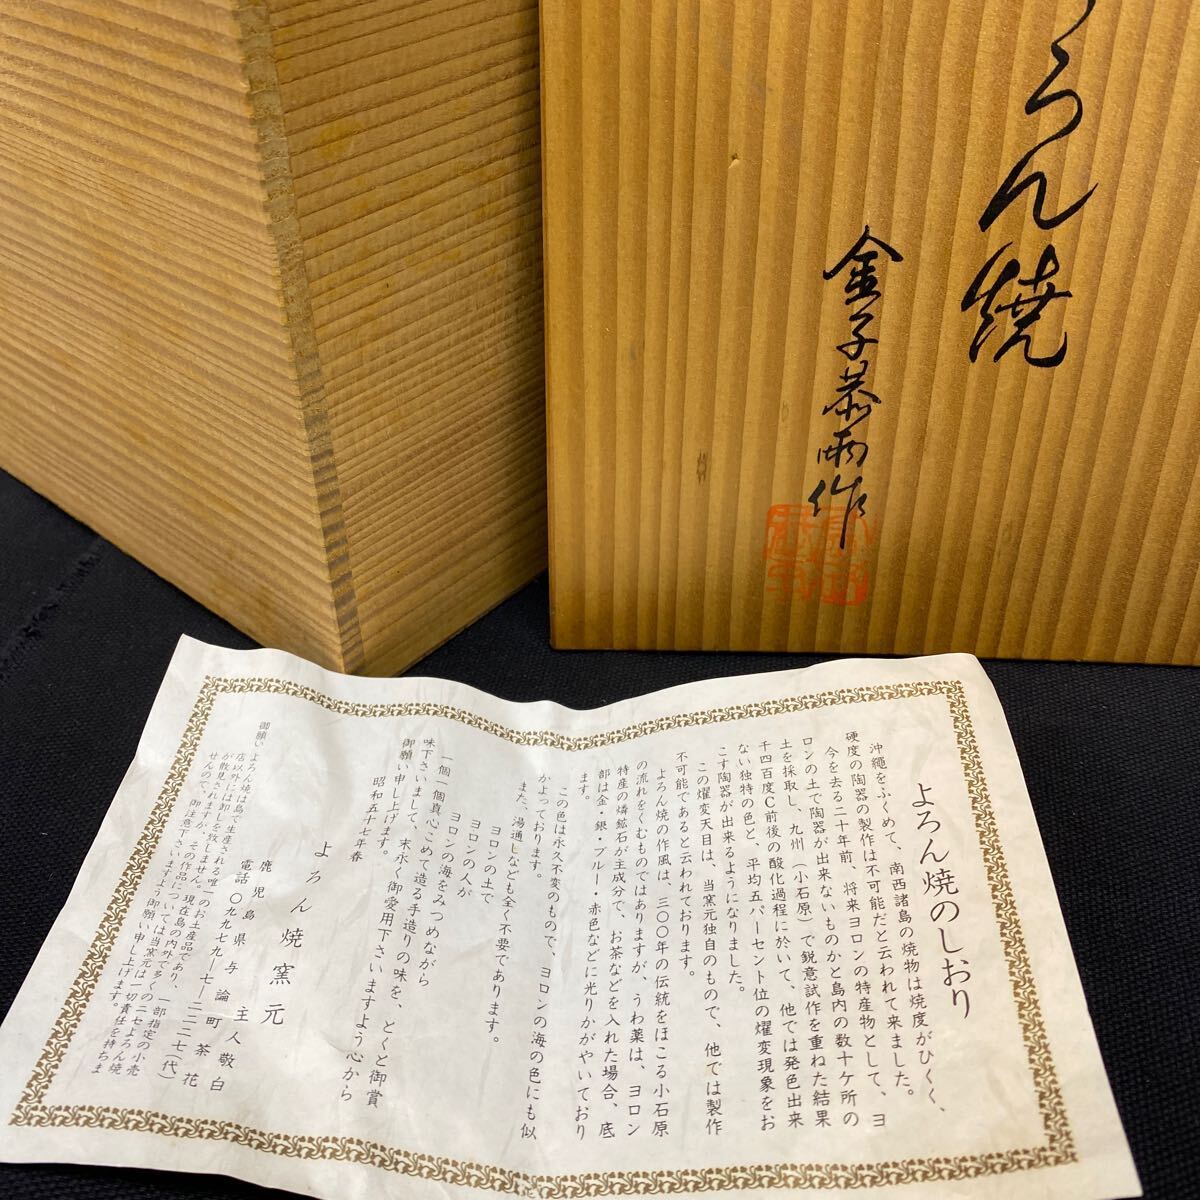 ろん焼
金子恭雨作
よろん焼のしおり
沖縄をふくめて、南西諸島の焼物は焼度がひくく、
硬度の陶器の製作は不可能だと云われて来ました。
今を去る二十年前、将来ヨロンの特産物として、ヨ
ロンの土で陶器が出来ないものかと島内の数十ケ所の
土を採取し、九州(小石原)で鋭意試作を重ねた結果
千四百度C前後の酸化過程に於いて、他では発色出来
ない独特の色と、平均五パーセント位の燿変現象をお
こす陶器が出来るようになりました。
この燿変天目は、当窯元独自のもので、他では製作
不可能であると云われております。
よろん焼の作風は、三〇〇年の伝統をほこる小石原
の流れをくむものではありますが、うわ薬は、ヨロン
特産の燐鉱石が主成分で、お茶などを入れた場合、底
部は金・銀・ブルー・赤色などに光りかがやいており
ます。
この色は永久不変のもので、ヨロンの海の色にも似
かよっております。
また、湯通しなども全く不要であります。
ヨロンの土で
ヨロンの人が
ヨロンの海をみつめながら
一個一個真心こめて造る手造りの味を、とくと御賞
味下さいまして、末永く御愛用下さいますよう心から
御願い申し上げます。
昭和五十七年春
よろん焼窯元
主人敬白
鹿児島県与論町茶花
電話〇九九七九―七―二三二七(代)
御願い よろん焼は島で生産される唯一のお土産品であり、一部指定の小売
店以外には卸しを致しません。現在島の内外で多くの二セよろん焼
が散見されますが、その作品については当窯元は一切責任を持ちま
せんので、御注意下さいますよう御願い申し上げます。